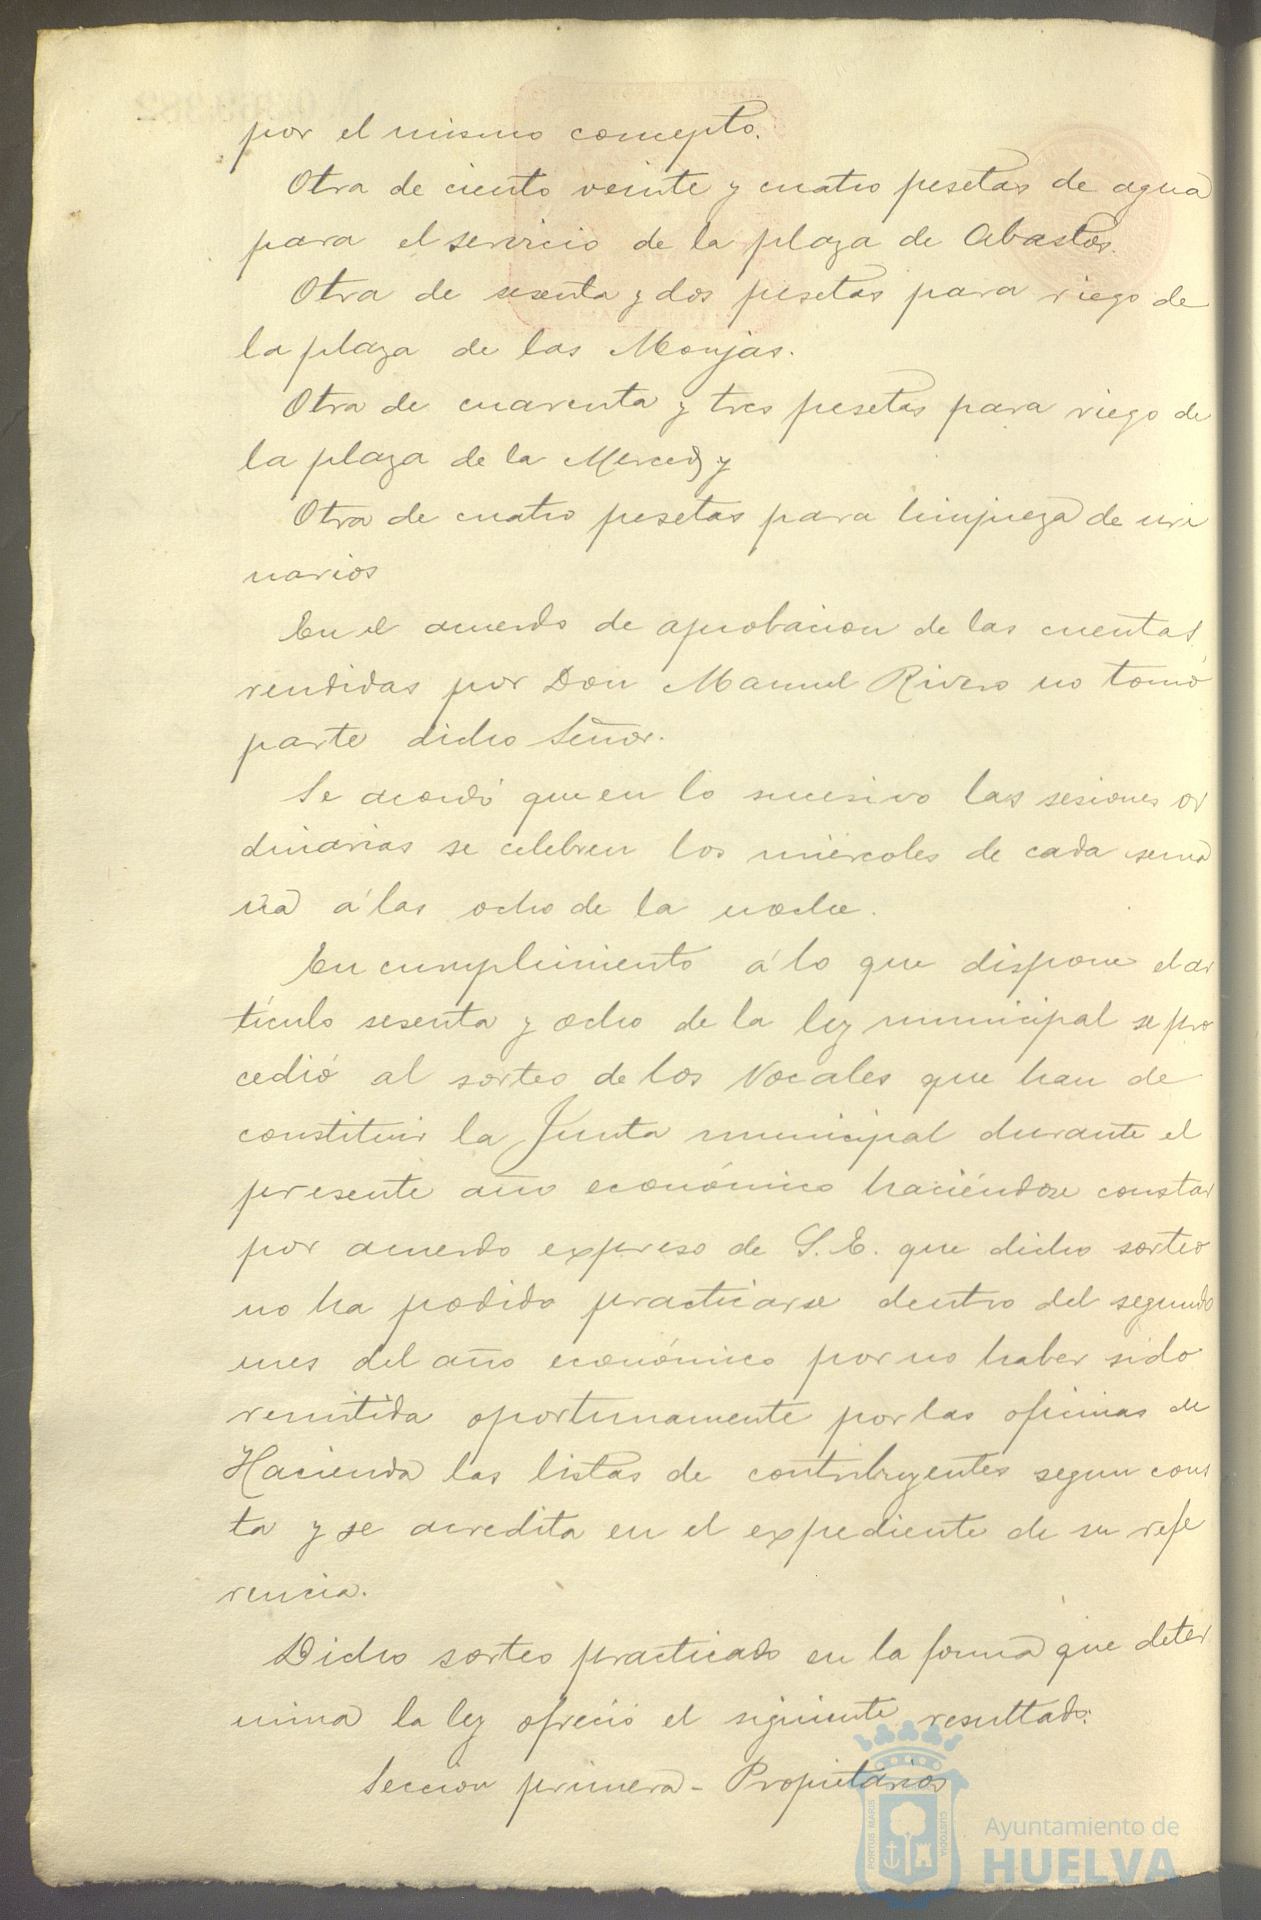 por el mismo concepto.
Otra de ciento veinte y cuatro pesetas de agua
para el servicio de la plaza de Abastos.
Otra de sesenta y dos pesetas para riego de
la plaza de las Monjas.
Otra de cuarenta y tres pesetas para riego de
la plaza de la Merced y
Otra de cuatro pesetas para limpieza de uri
narios
En el acuerdo de aprobacion de las cuentas
rendidas por Don Manuel Rivero no tomó
parte dicho Señor.
Se acordó que en lo sucesivo las sesiones or
dinarias se celebren los miércoles de cada sema
na á las ocho de la noche.
En cumplimiento á lo que dispone el ar
tículo sesenta y ocho de la ley municipal se pro
cedió al sorteo de los Vocales que han de
constituir la Junta municipal durante el
presente año económico haciéndose constar
por acuerdo expreso de S. E. que dicho sorteo
no ha podido practicarse dentro del segundo
mes del año económico por no haber sido
remitida oportunamente por las oficinas de
Hacienda las listas de contribuyentes segun cons
ta y se acredita en el expediente de su refe
rencia.
Dicho sorteo practicado en la forma que deter
mina la ley ofreció el siguiente resultado:
Seccion primera - Propietarios
PORTUS MARIS
CUSTODIA
Ayuntamiento de
HUELVA